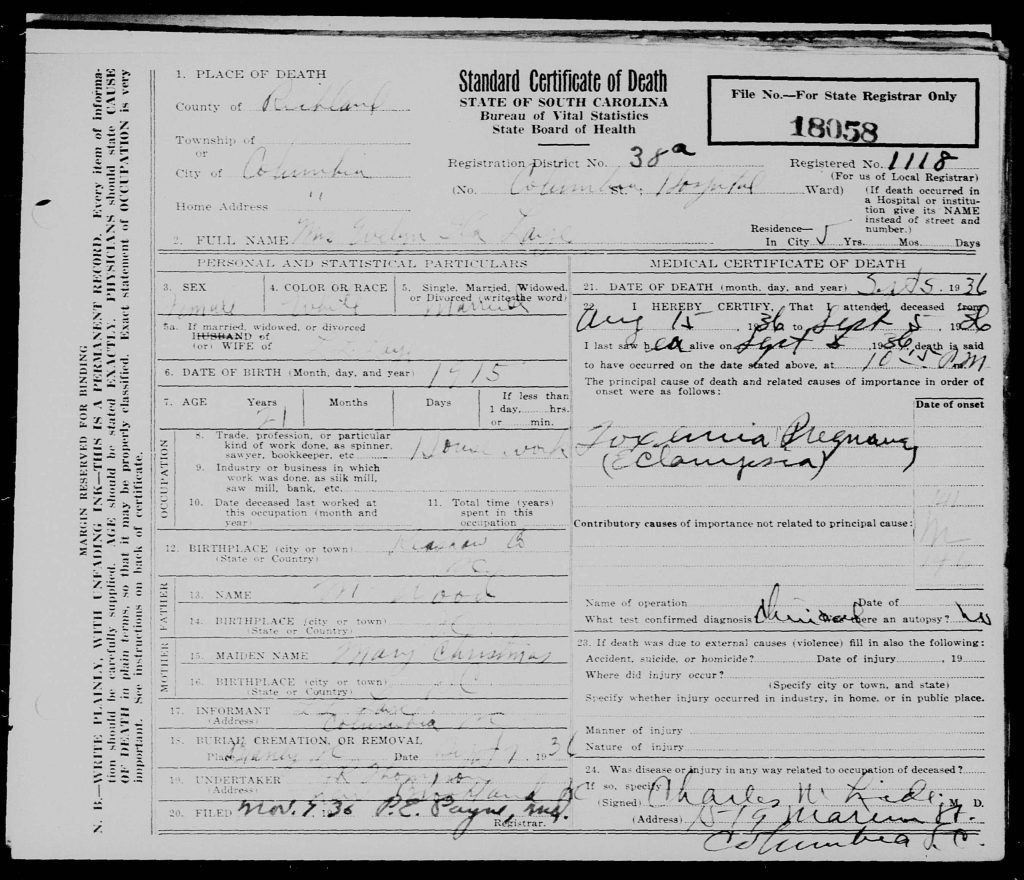 Standard Certificate of Death
STATE OF SOUTH CAROLINA
Bureau of Vital Statistics
State Board of Health
File No.—For State Registrar Only
18058
1. PLACE OF DEATH
County of Richland
Township of
or
City of Columbia
Home Address "
Registration District No. 38a
Registered No. 1118
(For us of Local Registrar)
(No. Columbia St. Hospital Ward)
(If death occurred in a Hospital or institution give its NAME instead of street and number.)
2. FULL NAME Mrs Evelyn
Residence—
In City 5 Yrs. Mos. Days
PERSONAL AND STATISTICAL PARTICULARS
3. SEX
Female
4. COLOR OR RACE
White
5. Single, Married, Widowed, or Divorced (write the word)
Married
5a. If married, widowed, or divorced
HUSBAND of
(or) WIFE of
6. DATE OF BIRTH (Month, day, and year) 1915
7. AGE Years Months Days If less than 1 day......hrs. or ......min.
21
OCCUPATION
8. Trade, profession, or particular kind of work done, as spinner, sawyer, bookkeeper, etc House work
9. Industry or business in which work was done, as silk mill, saw mill, bank, etc.
10. Date deceased last worked at this occupation (month and year)
11. Total time (years) spent in this occupation
12. BIRTHPLACE (city or town)
(State or Country)
FATHER
13. NAME
14. BIRTHPLACE (city or town)
(State or Country)
MOTHER
15. MAIDEN NAME Mary Christmas
16. BIRTHPLACE (city or town)
(State or Country)
17. INFORMANT
(Address) Columbia
18. BURIAL, CREMATION, OR REMOVAL
Place Date 1936
19. UNDERTAKER
20. FILED Nov. 7. 36 P.E. Payne, M.D.
Registrar.
MEDICAL CERTIFICATE OF DEATH
21. DATE OF DEATH (month, day, and year) Sept 5, 1936
22. I HEREBY CERTIFY, That I attended deceased from
Aug 15, 1936 to Sept 5, 1936
I last saw her alive on Sept 1936, death is said
to have occurred on the date stated above, at PM
The principal cause of death and related causes of importance in order of onset were as follows:
Date of onset
Toxemia Pregnancy
(Eclampsia)
Contributory causes of importance not related to principal cause:
Name of operation Date of
What test confirmed diagnosis? Clinical Was there an autopsy? No
23. If death was due to external causes (violence) fill in also the following:
Accident, suicide, or homicide? Date of injury , 19
Where did injury occur?
(Specify city or town, and state)
Specify whether injury occurred in industry, in home, or in public place.
Manner of injury
Nature of injury
24. Was disease or injury in any way related to occupation of deceased?
If so, specify
(Signed) Charles H. M. D.
(Address) 1519 Marion St.
Columbia S. C.
MARGIN RESERVED FOR BINDING
N. B.—WRITE PLAINLY, WITH UNFADING INK—THIS IS A PERMANENT RECORD. Every item of information should be carefully supplied. AGE should be stated EXACTLY. PHYSICIANS should state CAUSE OF DEATH in plain terms, so that it may be properly classified. Exact statement of OCCUPATION is very important. See instructions on back of certificate.